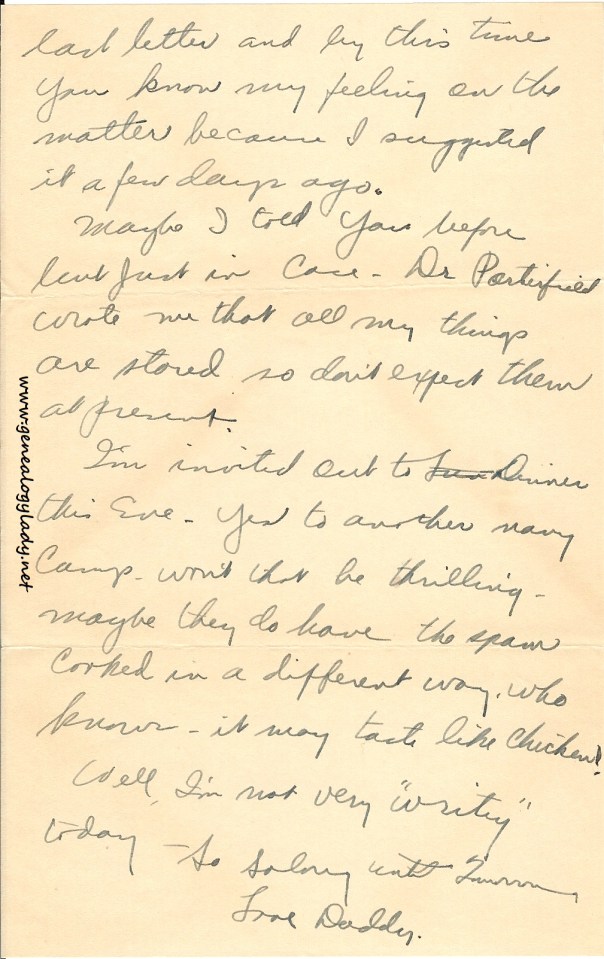 last letter and by this time
you know my feeling on the
matter because I suggested
it a few days ago.
Maybe I told you before
but just in case - Dr Porterfield
wrote me that all my things
are stored so don't expect them
at present.
I'm invited out to Dinner
this Eve - Yes to another navy
Camp - won't that be thrilling -
maybe they do have the spam
cooked in a different way, who
knows - it may taste like chicken!
Well, I'm not very "writey"
today - So solong until Tomorrow
Love Daddy.
www.genealogylady.net